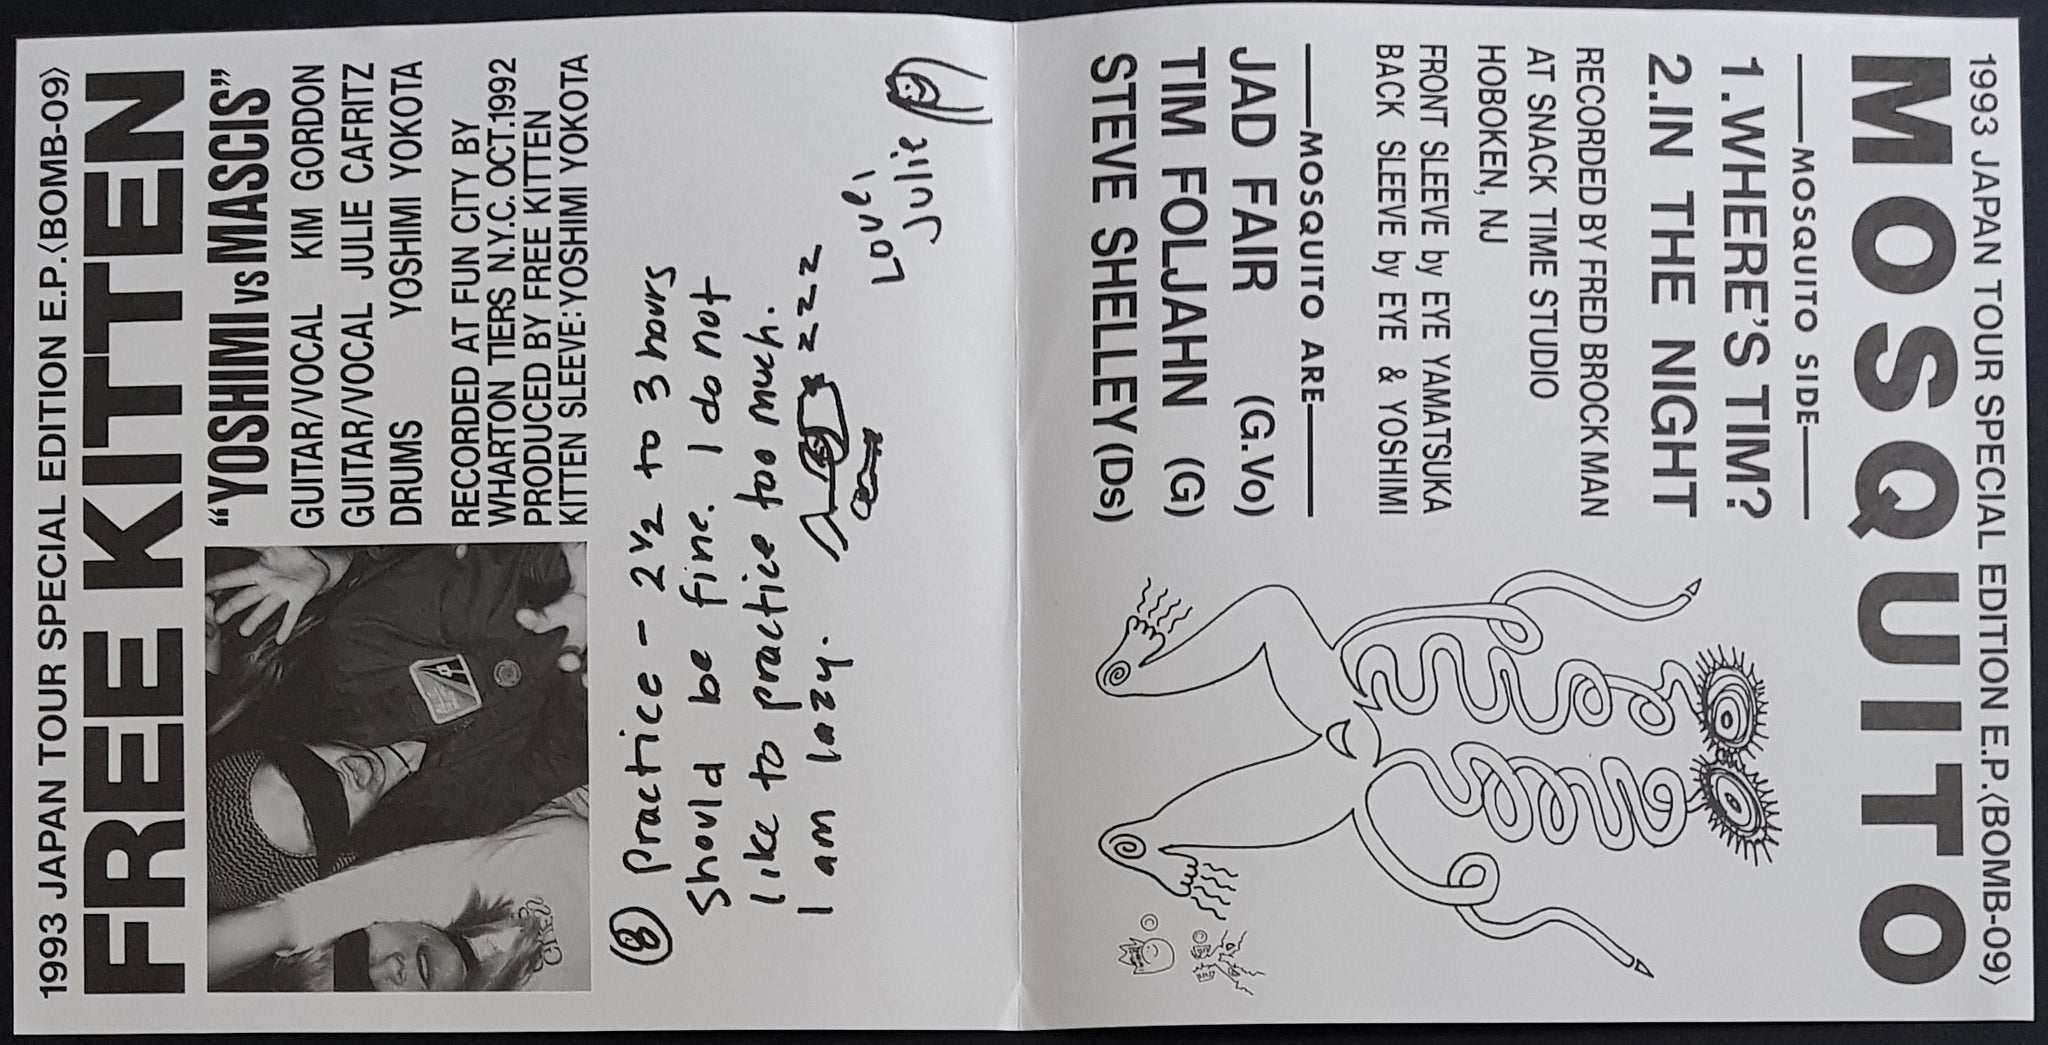 1993 JAPAN TOUR SPECIAL EDITION E.P.〈BOMB-09〉
FREE KITTEN
“YOSHIMI vs MASCIS”
GUITAR/VOCAL KIM GORDON
GUITAR/VOCAL JULIE CAFRITZ
DRUMS YOSHIMI YOKOTA
RECORDED AT FUN CITY BY
WHARTON TIERS N.Y.C. OCT.1992
PRODUCED BY FREE KITTEN
KITTEN SLEEVE:YOSHIMI YOKOTA
⑧ Practice - 2 1/2 to 3 hours
should be fine. I do not
like to practice too much.
I am lazy. zzz
Love,
Julie
1993 JAPAN TOUR SPECIAL EDITION E.P.〈BOMB-09〉
MOSQUITO
MOSQUITO SIDE
1.WHERE'S TIM?
2.IN THE NIGHT
RECORDED BY FRED BROCKMAN
AT SNACK TIME STUDIO
HOBOKEN, NJ
FRONT SLEEVE by EYE YAMATSUKA
BACK SLEEVE by EYE & YOSHIMI
MOSQUITO ARE
JAD FAIR (G.Vo)
TIM FOLJAHN (G)
STEVE SHELLEY(Ds)
©
©